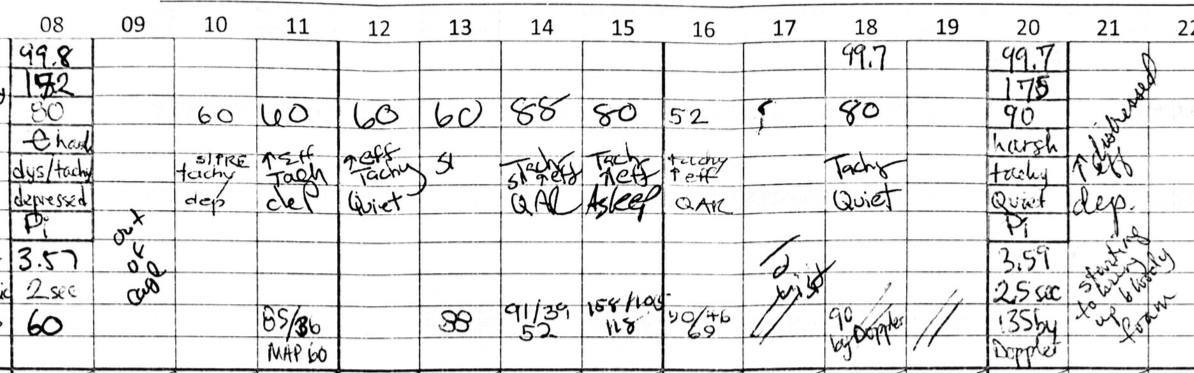 08 09 10 11 12 13 14 15 16 17 18 19 20 21 22
99.8 99.7 99.7
172 175
80 60 60 60 60 88 80 52 80 90
harsh
dys/tachy tachy ↑eff Tach ↑eff Tachy Sl Tachy Sl ↑eff Tach ↑eff tachy ↑eff Tachy tachy ↑eff distressed
depressed dep dep Quiet QAR Asleep QAR Quiet Quiet dep.
Pi Pi
3.57 out of cage 3.59 starting to bring up bloody foam
2 sec 2.5 sec
60 85/36 38 91/39 158/105 90/46 90 135 by
MAP 60 52 118 69 by Doppler Doppler